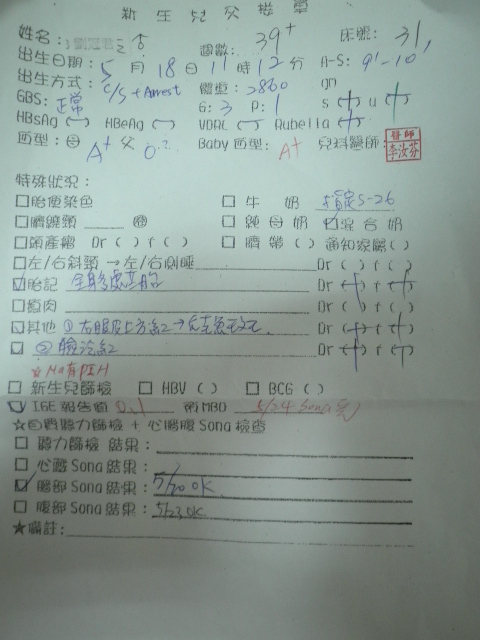 新生兒交接單
姓名: 之 週數: 39+ 床號: 31,
出生日期: 5 月 18 日 11 時 12 分 A-S: 9'-10,
出生方式: c/s + Arrest 體重: 2860 gm
GBS: 正常 G: 3 P: 1 s (+) u (+)
HBsAg (-) HBeAg (-) VDRL (-) Rubella (+)
血型: 母 A+ 父 O? Baby 血型: A+ 兒科醫師: 醫師 李汝芬
特殊狀況:
□胎便染色 □ 牛 奶 指定S-26
□臍繞頸 圈 □ 純母奶 混合奶
□頭產瘤 Dr ( ) r ( ) □ 臍帶 ( ) 通知家屬( )
□左/右斜頸 →左/右側睡 Dr ( ) r ( )
胎記 Dr (+) r (+)
□瘜肉 Dr ( ) r ( )
其他 ① Dr (+) r (+)
② 臉 紅 Dr (+) r (+)
☆ Ma有PIH
□ 新生兒篩檢 □ HBV ( ) □ BCG ( )
IGE 報告值 0.1 5/24 Sona
☆自費聽力篩檢 + 心腦腹 Sona 檢查
□ 聽力篩檢 結果:
□ 心臟 Sona 結果:
腦部 Sona 結果: 5/20 OK
□ 腹部 Sona 結果: 5/23 OK
★備註: